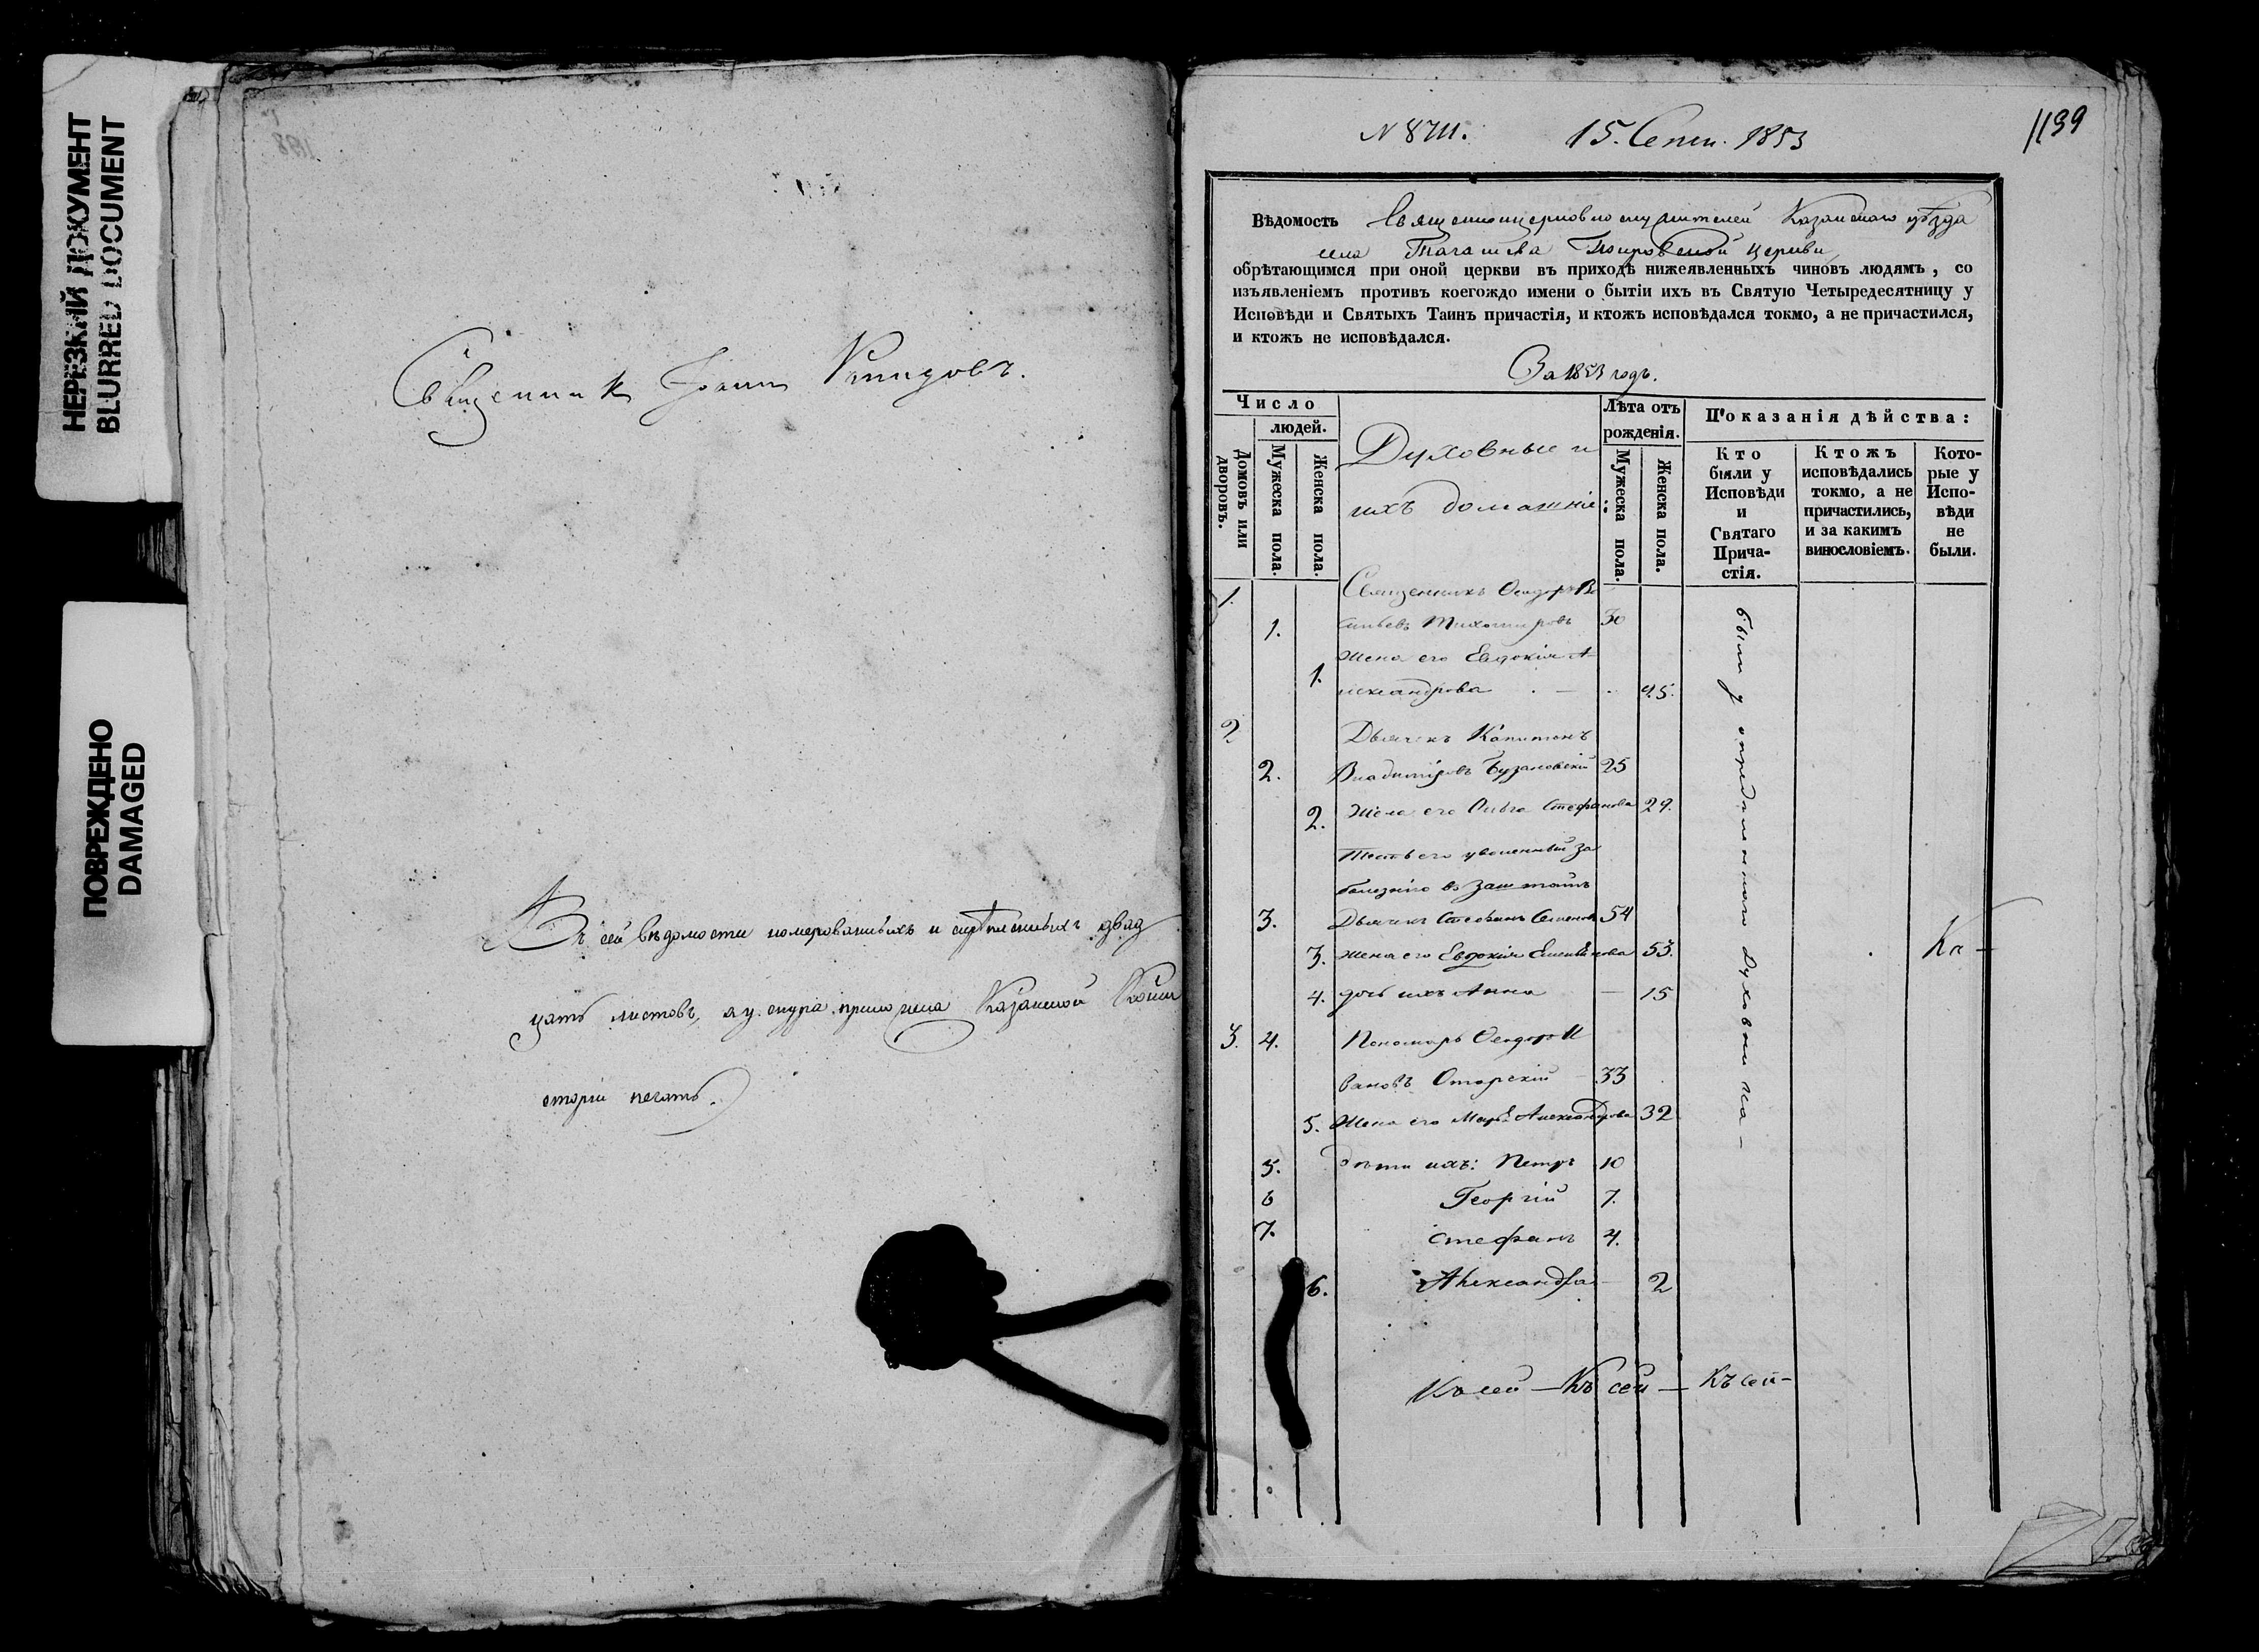 НЕРЕЗКИЙ ДОКУМЕНТ
BLURRED DOCUMENT
ПОВРЕЖДЕНО
DAMAGED
Священник Іоанн
Въ сей вѣдомости номерованныхъ и скрѣпленныхъ двад
цать листовъ, а у снура приложена Казанской Конси
сторіи печать.
N 8711. 15. Сент. 1853
1199
Вѣдомость Священноцерковнослужителей Казанскаго уѣзда
села Тагашева Покровской церкви
обрѣтающимся при оной церкви въ приходѣ нижеявленныхъ чиновъ людямъ, со
изъявленіемъ противъ коегождо имени о бытіи ихъ въ Святую Четыредесятницу у
Исповѣди и Святыхъ Таинъ причастія, и ктожъ исповѣдался токмо, а не причастился,
и ктожъ не исповѣдался.
За 1853 годъ.
Число
людей.
Домовъ или дворовъ.
Мужеска пола.
Женска пола.
Духовные и
ихъ домашніе:
Лѣта отъ
рожденія.
Мужеска пола.
Женска пола.
Показанія дѣйства:
Кто
были у
Исповѣди
и
Святаго
Прича-
стія.
Ктожъ
исповѣдались
токмо, а не
причастились,
и за какимъ
винословіемъ.
Кото-
рые у
Испо-
вѣди
не
были.
1. Священникъ Ѳеодоръ Ва
1. сильевъ Тихомировъ 30
Жена его Евдокія А
1. лександрова 25.
2 Дьячекъ Капитонъ
2. Владиміровъ 25
2. Жена его Ольга Стефанова 29.
Тесть его уволенный за
болезнію въ заштатъ
3. Дьячекъ Стефанъ Семеновъ 54
3. Жена его Евдокія 53.
4. дочь ихъ Анна — 15
3. 4. Пономарь Ѳеодоръ И
вановъ Отарскій 33
5. Жена его Марѳа Александрова 32
5. Дѣти ихъ: Петръ 10
6 Георгій 7.
7. Стефанъ 4.
6. Александра — 2
были у опредѣленнаго Духовника —
Къ —
Къ сей — Къ сей — Къ сей —